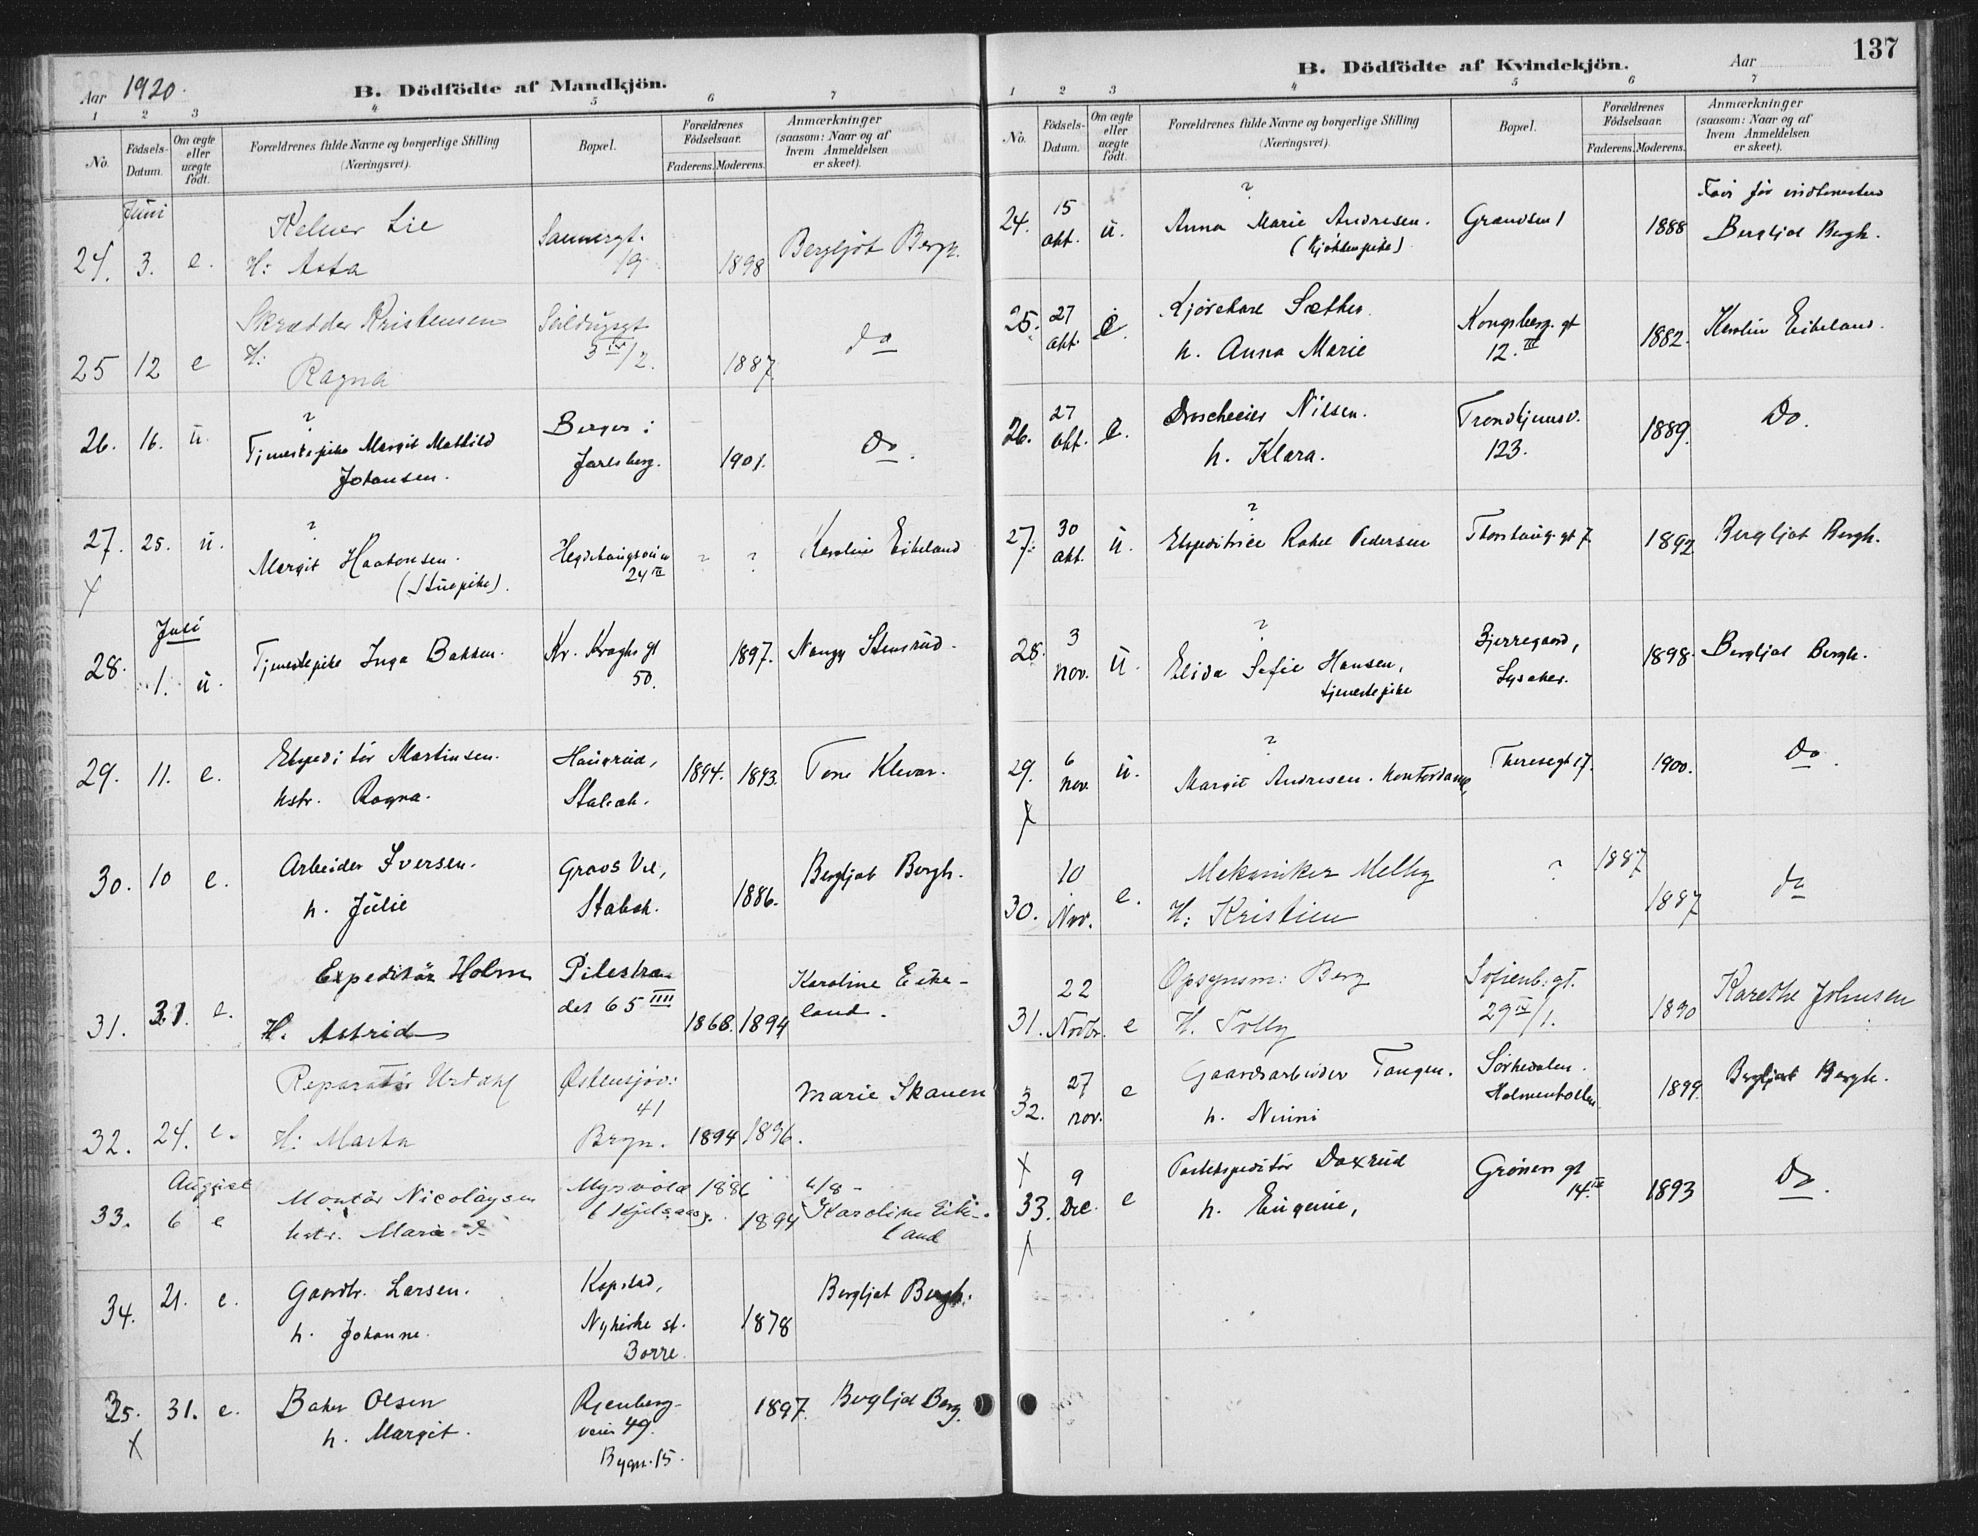 Aar 1920.
B. Dödfödte af Mandkjön.
1 2 3 4 5 6 7
No.
Födsels-Datum.
Om ægte eller uægte födt.
Forældrenes fulde Navne og borgerlige Stilling
(Næringsvei).
Bopæl.
Forældrenes Födselsaar.
Faderens. Moderens.
Anmærkninger
(saasom: Naar og af
hvem Anmeldelsen
er skeet).
Juni
24. 3. e. Kelner Lie
H: Asta
Sannergt.
19
1898 Bergljót Bergh.
25 12 e Skrædder Kristensen
H:
Ragna
Seildugsgt
3 IV/2.
1887. do
26. 16. u. ?
Tjenestepike Margit Mathild
Johansen.
Berger i
Jarlsberg.
1901. Do.
27. 25. u. ?
Margit Haakonsen.
(Stuepike).
24 III
? ? Karoline Eikeland
X
Juli
28. 1. u. Tjenestepike Inga Bakken.
Kr. Kroghs gt
50.
1897. Nanny Stensrud.
29. 11. e. Ekspeditør Martinsen.
hstr. Ragna.
Haugrud,
Stabæk.
1894. 1893. Tone Klevar.
30. 10 e. Arbeider Iversen.
h. Julie
Grøvs Vei,
Stabæk.
1886. Bergljot Bergh.
31. 21. e. Expeditør Holm
H. Astrid
Pilestræ-
det 65 IIII
1868. 1894 Karoline Eike-
land.
32. 24. e. Reparatør Urdahl
H: Marta
Østensjøv:
41
Bryn.
1894 1896. Marie Skauen
August
33. 6 e Montör Nicolaysen
hstr. Marie
1886
1894 Karoline Eike-
land
34. 21. e. Gaardbr. Larsen.
h. Johanne.
Kopstad,
Nykirke st.
Borre.
1878 Bergljot Bergh.
35. 31. e. Baker Olsen
h. Margit.
Rjenberg-
veien 49.
Bygn. 15.
1897. Bergljot Berg.
X
B. Dödfödte af Kvindekjön.
Aar
137
1 2 3 4 5 6 7
No.
Födsels-Datum.
Om ægte eller uægte födt.
Forældrenes fulde Navne og borgerlige Stilling
(Næringsvei).
Bopæl.
Forældrenes Födselsaar.
Faderens. Moderens.
Anmærkninger
(saasom: Naar og af
hvem Anmeldelsen
er skeet).
24. 15 okt. u. ?
Anna Marie Andresen.
(Kjøkkenpike).
Grændsen 1
1888 Bergljot Bergh.
25. 27 okt. e. Kjørekarl Sæther
h. Anna Marie
Kongsberg. gt
12. III
1882. Karoline Eikeland.
26. 27 okt. e. Droscheeier Nilsen.
h. Klara.
Trondhjemsv.
123.
1889. Do.
27. 30 okt. u. ?
Ekspeditrice Rakel Pedersen
Thorshaugs gt 7.
1892 Bergljot Bergh.
28. 3 nov. u. ?
Elida Sofie Hansen,
tjenestepike
Bjerregaard,
Lysaker.
1898. Bergljot Bergh.
29. 6 nov. u. ?
Margit Andresen. kontordame,
Theresegt 17.
1900. Do.
X
30. 10 Nov. e. Mekaniker Melby
H: Kristine
? 1887
1887 do
31. 22 Novbr. e Opsynsm: Berg
H. Tolly
Sofienb: gt.
29 IV/1.
1890 Karethe Johnsen
32. 27 nov. e Gaardsarbeider Tangen.
h. Ninni
Sørkedalen.
Holmenkollen.
1899. Bergljot Bergh.
X
33. 9 Dec. e Postekspeditör Daxrud
h. Eugenie,
Grøners gt
14. IV
1893 Do.
X